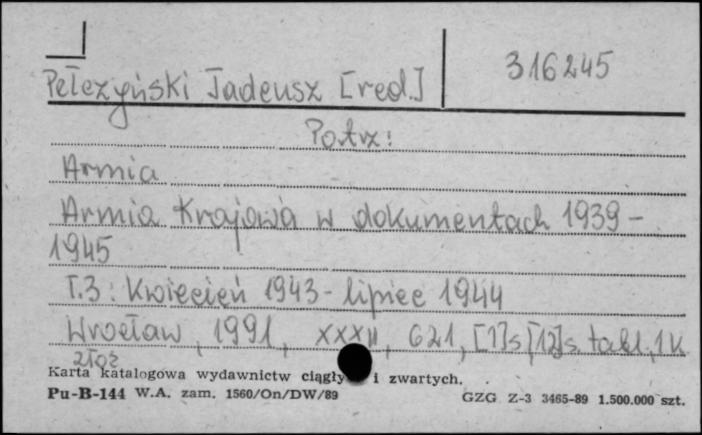 Pełczyński Tadeusz [red.]
316245
Patrz:
Armia
Armia Krajowa w dokumentach 1939-
1945
T.3: Kwiecień 1943 - lipiec 1944
Wrocław, 1991, XXXII, 621, [1]s, [12]s. tabl., 1 k
złoż
Karta katalogowa wydawnictw ciągły i zwartych.
Pu-B-144 W.A. zam. 1560/On/DW/89
GZG Z-3 3465-89 1.500.000 szt.